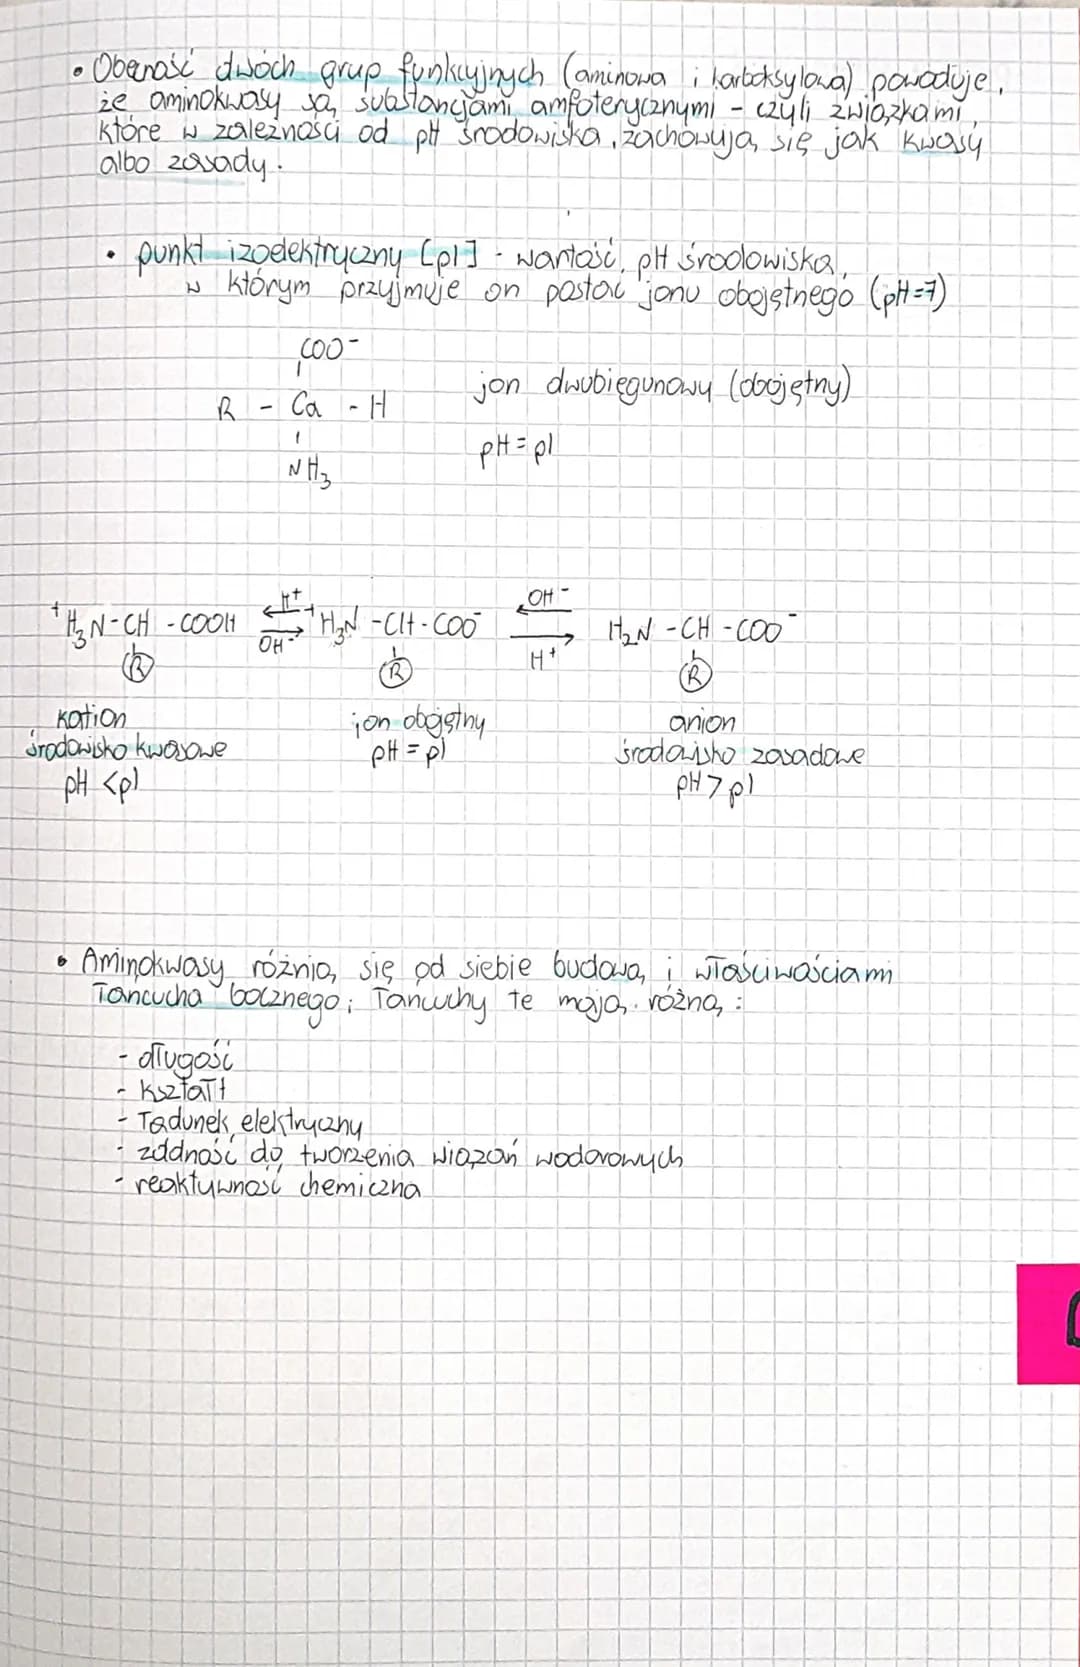 • Obecność dwóch grup funkcyjnych (aminowa i karboksylowa) powoduje,
że aminokwasy są substancjami amfoterycznymi - czyli związkami,
które w zależności od pH środowiska, zachowują się jak kwasy
albo zasady.
• punkt izoelektryczny [pI] - wartość pH środowiska,
w którym przyjmuje on postać jonu obojętnego (pH=7)
COO⁻
R - Ca - H
NH₃
jon dwubiegunowy (obojętny)
pH = pI
⁺H₃N-CH-COOH H⁺ OH⁻ ⁺H₃N-CH-COO⁻ OH⁻ H⁺ H₂N-CH-COO⁻
R R R
kation jon obojętny anion
środowisko kwasowe pH = pI środowisko zasadowe
pH < pI pH > pI
• Aminokwasy różnią się od siebie budową i właściwościami
łańcucha bocznego; łańcuchy te mają różną:
- długość
- kształt
- ładunek elektryczny
- zdolność do tworzenia wiązań wodorowych
- reaktywność chemiczna